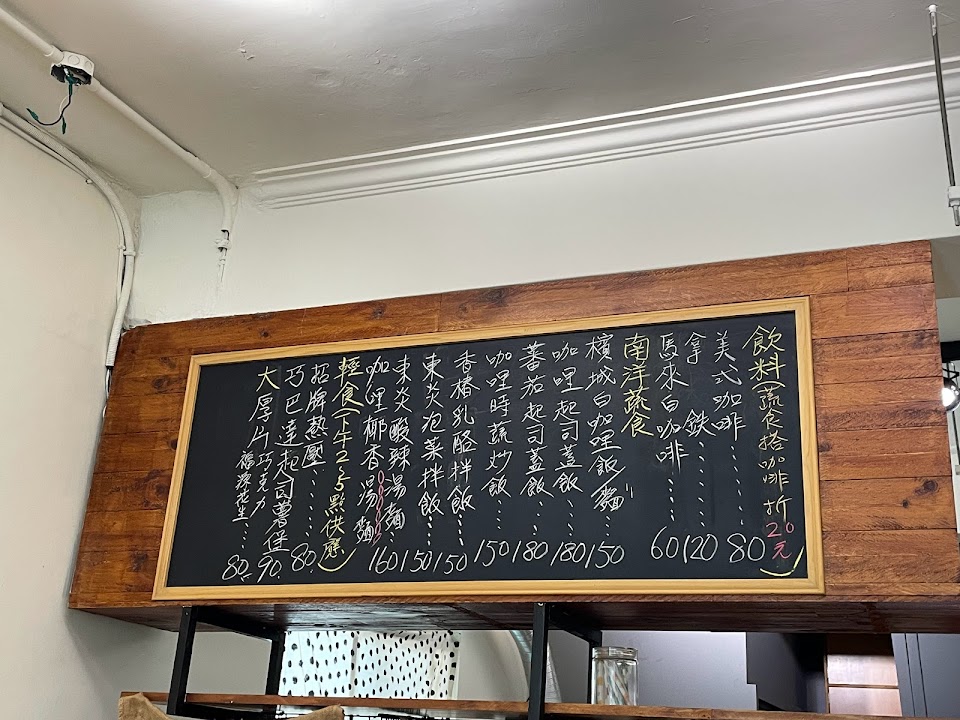 飲料(蔬食搭咖啡折20元)
美式咖啡......80
拿鐵......120
馬來白咖啡 60
南洋蔬食
檳城白咖哩飯/麵...150
咖哩起司蓋飯...180
蕃茄起司蓋飯...180
咖哩時蔬炒飯...150
香椿乳酪拌飯...150
東炎泡菜拌飯...150
東炎酸辣湯麵...160
咖哩椰香湯麵
輕食(下午2~5點供應)
招牌熱壓......80
巧巴達起司薯堡 90
大厚片巧克力
福源花生...80